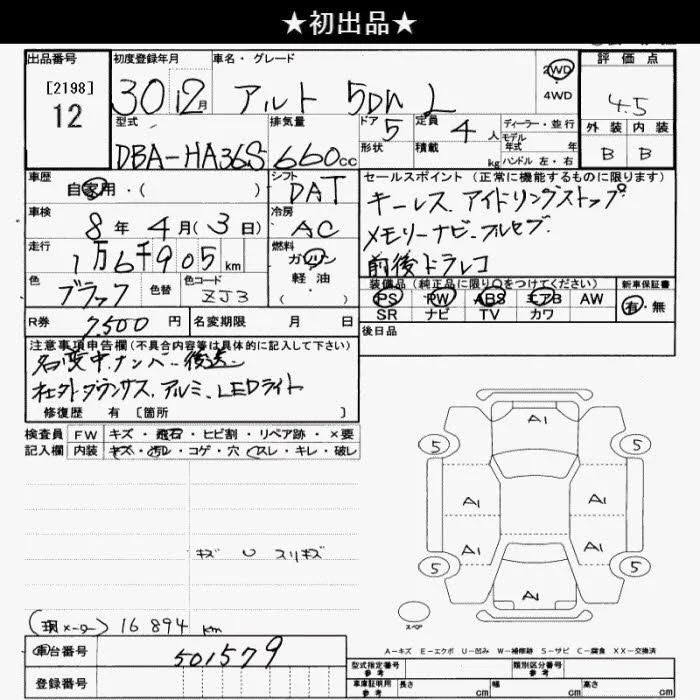 ★初出品★
出品番号 初度登録年月 車名・グレード 評価点
[2198]
12
30 12月 アルト 5DR L 2WD ・ 4WD 4.5
型式 排気量 ドア 5 定員 4人 ディーラー・並行
形状 積載 kg モデル年式 年
ハンドル 左・右
外装 内装
B B
DBA-HA36S 660cc
車歴 シフト セールスポイント(正常に機能するものに限ります)
自家用・( ) DAT キーレス、アイドリングストップ
車検 冷房 メモリーナビ・フルセグ
8年4月(3日) AC 前後ドラレコ
走行 燃料
1万6千905km ガソリン
軽油
( )
色 色替 色コード
ブラック ZJ3
装備品(純正品に限り○をつけてください) 新車保証書
PS PW ABS エアB AW 有・無
SR ナビ TV カワ
R券 7,500円 名変期限 月 日 後日品
注意事項申告欄(不具合内容等は具体的に記入して下さい)
名変中、ナンバー後送
社外ダウンサス、アルミ、LEDライト
修復歴 有 [箇所 ]
検査員 FW キズ・飛石・ヒビ割・リペア跡・×要
記入欄 内装 キズ・汚レ・コゲ・穴・スレ・キレ・破レ
キズ U スリキズ
A1
5 5
A1 A1
A1 A1
5 5
A1
スペア
(現メーター) 16894 km
A-キズ E-エクボ U-凹み W-補修跡 S-サビ C-腐食 XX-交換済
車台番号 501579
登録番号
型式指定番号 参考 類別区分番号 参考
車庫証明用 参考 長さ cm 幅 cm 高さ cm